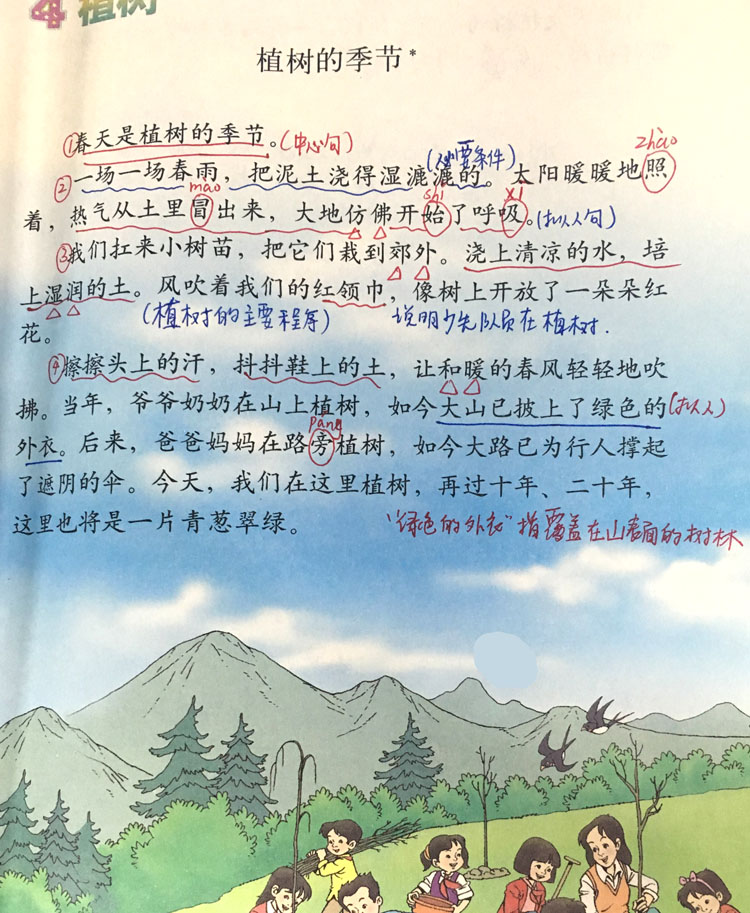 4 植树
植树的季节*
①春天是植树的季节。(中心句)
(必要条件)
zhào
②一场一场春雨，把泥土浇得湿漉漉的。太阳暖暖地照
mào
shǐ
xī
着，热气从土里冒出来，大地仿佛开始了呼吸。(拟人句)
③我们扛来小树苗，把它们栽到郊外。浇上清凉的水，培
上湿润的土。风吹着我们的红领巾，像树上开放了一朵朵红
花。
(植树的主要程序)
说明少先队员在植树.
④擦擦头上的汗，抖抖鞋上的土，让和暖的春风轻轻地吹
拂。当年，爷爷奶奶在山上植树，如今大山已披上了绿色的(拟人)
páng
外衣。后来，爸爸妈妈在路旁植树，如今大路已为行人撑起
了遮阴的伞。今天，我们在这里植树，再过十年、二十年，
这里也将是一片青葱翠绿。
"绿色的外衣"指覆盖在山表面的树林